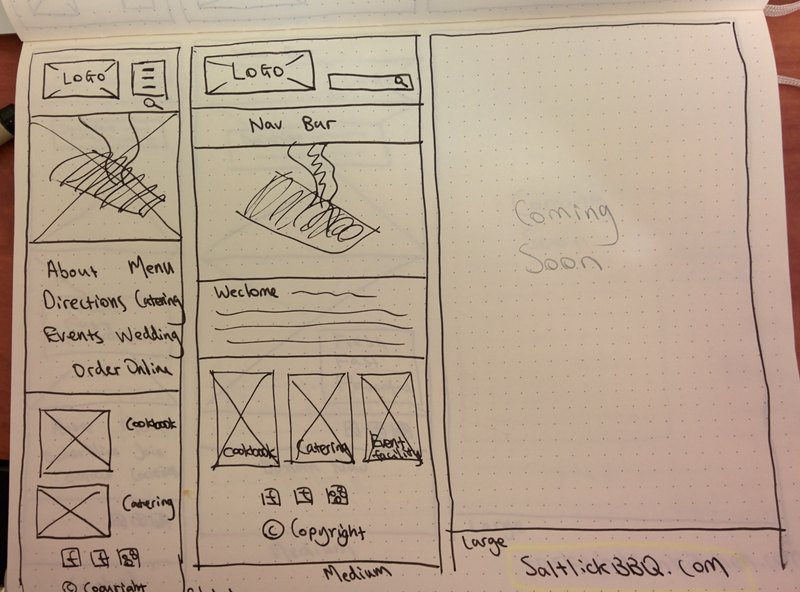 LOGO
About Menu
Directions Catering
Events Wedding
Order Online
Cookbook
Catering
f t
© Copyright
LOGO
Nav Bar
Weclome
Cookbook Catering Event facility
f t
© Copyright
Medium
Coming
Soon
Large
SaltlickBBQ.com